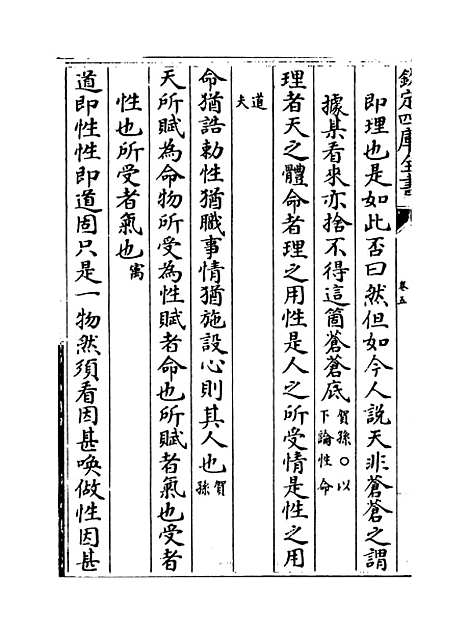 欽定四庫全書
卷五
即理也是如此否曰然但如今人説天非蒼蒼之謂
據某看來亦捨不得這箇蒼蒼底賀孫○以下論性命
理者天之體命者理之用性是人之所受情是性之用
道夫
命猶誥勅性猶職事情猶施設心則其人也賀孫
天所賦為命物所受為性賦者命也所賦者氣也受者
性也所受者氣也㝢
道即性性即道固只是一物然須看因甚喚做性因甚